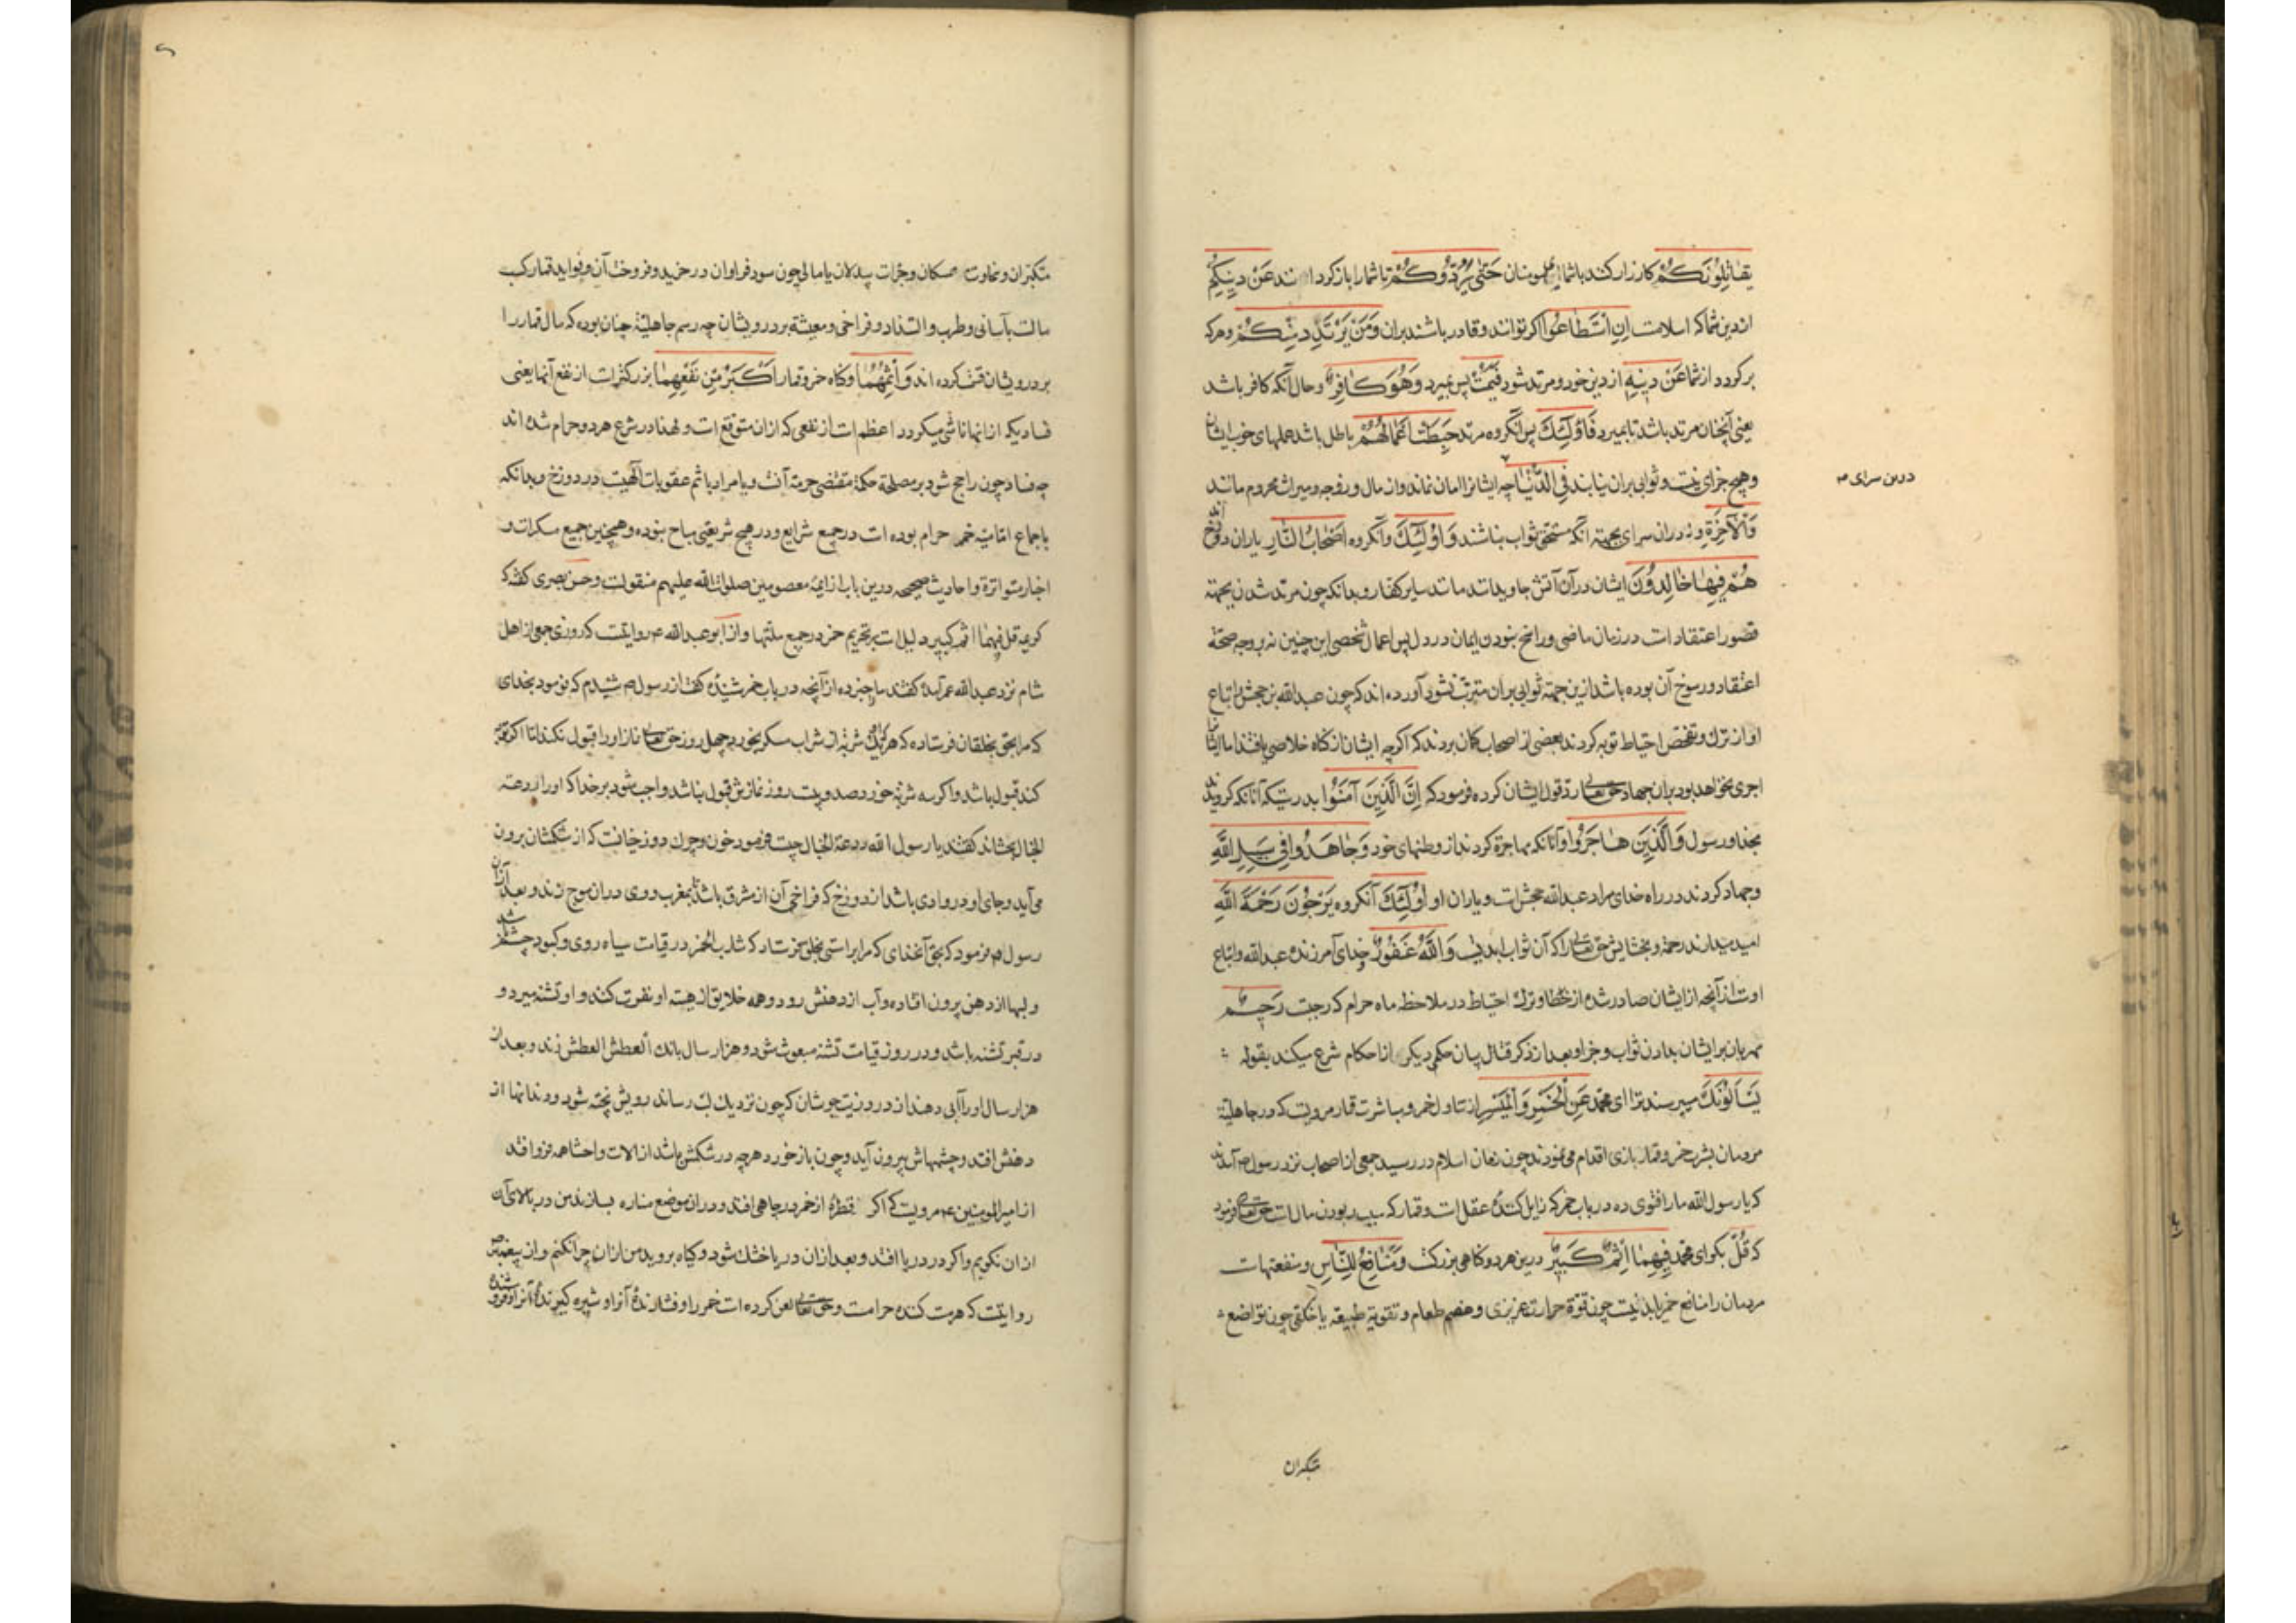 یقاتلونکم کارزار کنند با شما ای مومنان حَتّٰی یَرُدُّوکُمْ تا شما را باز کردانند عَنْ دینِکُمْ
از دین شما که اسلامست اِنِ اسْتَطاعُوا اکر توانند و قادر باشند بران وَمَنْ یَرْتَدِدْ مِنْکُمْ و هرکه
برکردد از شما عَنْ دینِهِ از دین خود و مرتد شود فَیَمُتْ پس بمیرد وَهُوَ کافِرٌ و حال آنکه کافر باشد
یعنی آنچنان مرتد باشد تا بمیرد فَاُولٰئِکَ پس آنکروه مرتد حَبِطَتْ اَعْمالُهُمْ باطل باشد عملهای خوب ایشان
و هیچ جزای نیست و ثوابی بران نیابند فِی الدُّنْیا چه ایشانرا امان نماند و از مال و زوجه و میراث محروم مانند
درین سرای
وَالْآخِرَةِ و نه دران سرای بجهته آنکه مستحق ثواب نباشند وَاُولٰئِکَ و آنکروه اَصْحابُ النّارِ یاران دوزخ اند
هُمْ فیها خالِدُونَ ایشان در آن آتش جاویدانند مانند سایر کفار و بدانکه چون مرتد شدن بجهته
قصور اعتقاداتست در زمان ماضی و راسخ نبودن ایمان در دل پس اعمال شخصی این چنین نه بر وجه صحة
اعتقاد و رسوخ آن بوده باشد ازین جهته ثوابی بران مترتب نشود آورده اند که چون عبدالله بن جحش و اتباع
او از ترک و تفحص احتیاط توبه کردند بعضی از اصحاب کمان بردند که اکرچه ایشان از کناه خلاصی یافتند اما ایشانرا
اجری نخواهد بود بران جهاد حق تعالی رد قول ایشان کرده فرمود که اِنَّ الَّذینَ آمَنُوا بدرستیکه آنانکه کرویدند
بخدا و رسول وَالَّذینَ هاجَرُوا و آنانکه مهاجرة کردند از وطنهای خود وَجاهَدُوا فی سَبیلِ اللّٰهِ
و جهاد کردند در راه خدای مراد عبدالله جحش است و یاران او اُولٰئِکَ آنکروه یَرْجُونَ رَحْمَةَ اللّٰهِ
امید میدارند رحمة و بخشایش حق تعالی را که آن ثواب ابدیست وَاللّٰهُ غَفُورٌ و خدای آمرزنده عبدالله و اتباع
اوست از آنچه از ایشان صادر شده از خطا و ترک احتیاط در ملاحظه ماه حرام که رجبست رَحیمٌ
مهربان بر ایشان بدادن ثواب و جزا و بعد از ذکر قتال بیان حکمی دیکر از احکام شرع میکند بقوله
یَسْاَلُونَکَ میپرسند ترا ای محمد عَنِ الْخَمْرِ وَالْمَیْسِرِ از تناول خمر و مباشرت قمار مرویست که در جاهلیة
مردمان بشرب خمر و قمار بازی اقدام می نمودند چون زمان اسلام در رسید جمعی از اصحاب نزد رسول ص آمدند
که یا رسول الله ما را فتوی ده در باب خمر که زایل کنندهٔ عقلست و قمار که سبب ربودن مالست حق تعالی فرمود
که قُلْ بکو ای محمد فیهِما اِثْمٌ کَبیرٌ درین هر دو کناهی بزرکست وَمَنافِعُ لِلنّاسِ و منفعتهاست
مردمان را منافع خمر یا بدنیست چون قوة حرارت غریزی و هضم طعام و تقویة طبیعه یا خلقی چون تواضع
متکبران
متکبران و سخاوت ممسکان و جرات بیدلان یا مالی چون سود فراوان در خرید و فروخت آن و فواید قمار کسب
مالست بآسانی و طرب و التذاذ و فراخی و معیشة بر درویشان چه رسم جاهلیة چنان بوده که مال قمار را
بر درویشان قسمت کرده اند وَاِثْمُهُما و کناه خمر و قمار اَکْبَرُ مِنْ نَفْعِهِما بزرکتر است از نفع آنها یعنی
فسادیکه از آنها ناشی میکردد اعظم است از نفعی که ازان متوقع است و لهذا در شرع هر دو حرام شده اند
چه فساد چون راجح شود بر مصلحة حکمة مقتضی حرمة آنست و یا مراد باثم عقوبات آلهیست در دوزخ و بدانکه
باجماع امامیه خمر حرام بوده است در جمیع شرایع و در هیچ شریعتی مباح نبوده و همچنین جمیع مسکرات و
اخبار متواترة و احادیث صحیحه درین باب از ایمهٔ معصومین صلوات الله علیهم منقولست و حسن بصری کفته که
کریمه قل فیهما اثم کبیر دلیلست بر تحریم خمر در جمیع ملتها و از ابو عبدالله ع روایتست که روزی جمعی از اهل
شام نزد عبدالله عمر آمده کفتند ما را خبر ده از آنچه در باب خمر شنیدهٔ کفت از رسول ص شنیدم که فرمود بخدای
که مرا بحق بخلقان فرستاده که هر که یک شربه از شراب مسکر بخورد چهل روز حق تعالی نماز او را قبول نکند اما اکر توبه
کند قبول باشد و اکر سه شربة خورد صد و بیست روز نمازش قبول نباشد و واجب شود بر خدا که او را از ردغه
الخبال بچشاند کفتند یا رسول الله ردغة الخبال چیست فرمود خون و چرک دوزخیانست که از شکمشان برون
می آید و جای او در وادی باشد از دوزخ که فراخی آن از مشرق باشد تا بمغرب و وی دران موج زند و بعد ازان
رسول ص فرمود که بحق آنخدای که مرا براستی بخلق فرستاد که شارب الخمر در قیامت سیاه روی و کبود چشم باشد
و لبها از دهن برون افتاده و آب از دهنش رود و همه خلایق از هیئة او نفرت کنند و او تشنه میرد و
در قبر تشنه باشد و در روز قیامت تشنه مبعوث شود و هزار سال بانک العطش العطش زند و بعد از
هزار سال او را آبی دهند از دروزیت جوشان که چون نزدیک لب رساند رویش پخته شود و دندانها از
دهنش افتد و چشمهاش بیرون آید و چون باز خورد هرچه در شکمش باشد از الات و احشا همه فرو افتد
از امیر المومنین ع مرویست که اکر قطرهٔ از خمر در چاهی افتد و دران موضع مناره بسازند من در بالای آن
اذان نکویم و اکر در دریا افتد و بعد ازان دریا خشک شود و کیاه بروید من ازان چرا نکنم و از پیغمبر ص
روایتست که هر مست کننده حرامست و حق تعالی لعن کرده است خمر را و فشارندهٔ آنرا و شیره کیرندهٔ آنرا و فروشنده